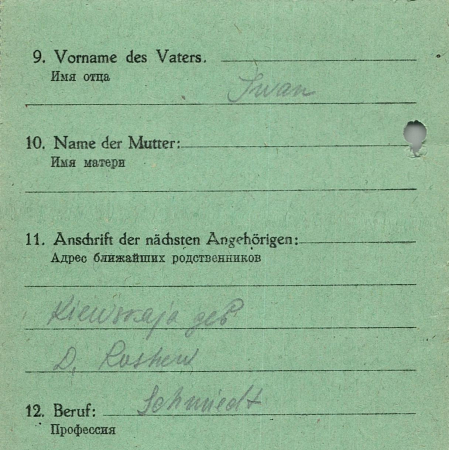 9. Vorname des Vaters.
Имя отца
Iwan
10. Name der Mutter:
Имя матери
11. Anschrift der nächsten Angehörigen:
Адрес ближайших родственников
Kiewskaja geb
D. Roshew
12. Beruf: Schmiedt
Профессия